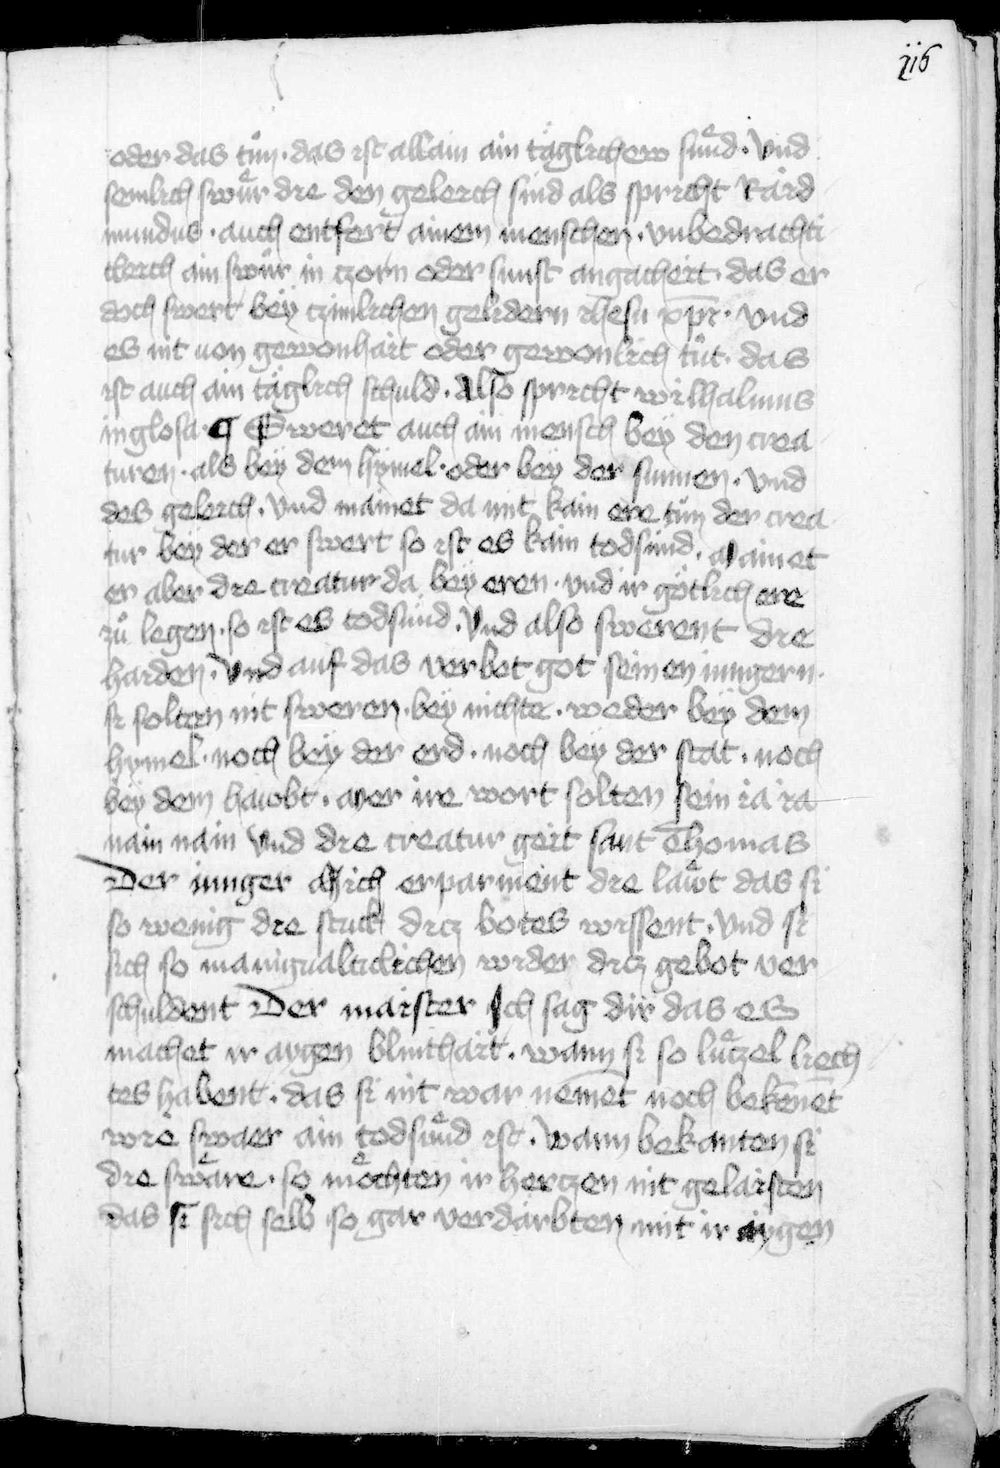 116
oder das tůn · das ist allain ain täglichew sünd · Vnd
semlich swůr die den geleich sind als spricht Raid
mundus · auch entfert ainem menschen · vnbedrachti
cleich ain swůr in czorn oder sunst angacheit · das er
doch swert beÿ czimlichen gelidern ihesu xpi · Vnd
es nit uon gewonhait oder gewonlich tůt · das
ist auch ain täglich schuld · Also spricht wilhalmus
in glosa · ¶ Sweret auch ain mensch beÿ den crea
turen · als beÿ dem hÿmel · oder beÿ der sunnen · Vnd
des geleich · Vnd mainet da mit kain ere tůn der crea
tur beÿ der er swert so ist es kain todsünd · Mainet
er aber die creatur da beÿ eren · vnd ir götlich ere
zů legen · so ist es todsünd · Vnd also swerent die
haiden · Vnd auf das verbot got seinen iungern ·
si solten nit sweren · beÿ nichte · weder beÿ dem
hymel · noch beÿ der erd · noch beÿ der stat · noch
beÿ dem hawbt · mer ire wort solten sein ia ia
nain nain Vnd die creatur geit sant Thomas
Der iunger Mich erparment die läwt das si
so wenig die stuck dicz botes wissent · Vnd si
sich so manigualticlichen wider dicz gebot ver
schuldent Der maister Ich sag dir das es
machet ir aygen blinthait · wann si so lüczel liech
tes habent · das si nit war nemet noch bekennet
wie swaer ain todsünd ist · Wann bekanten si
die swäre · so möchten ir herczen nit gelaisten
das si sich selb so gar verdarbten mit ir aÿgen